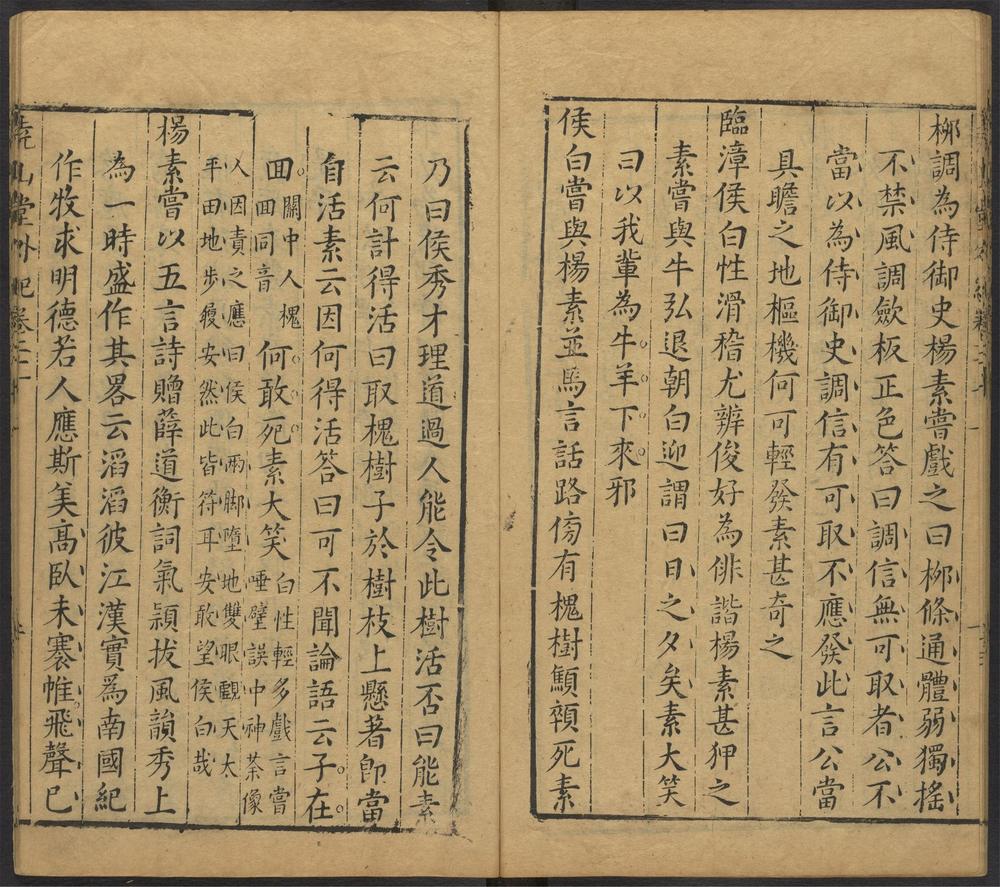 柳調為侍御史楊素嘗戲之曰柳條通體弱獨搖
不禁風調歛板正色答曰調信無可取者公不
當以為侍御史調信有可取不應發此言公當
具瞻之地樞機何可輕發素甚奇之
臨漳侯白性滑稽尤辨俊好為俳諧楊素甚狎之
素嘗與牛弘退朝白迎謂曰日之夕矣素大笑
曰以我輩為牛羊下來邪
侯白嘗與楊素並馬言話路傍有槐樹顦顇死素
乃曰侯秀才理道過人能令此樹活否曰能素
云何計得活曰取槐樹子於樹枝上懸著即當
自活素云因何得活答曰可不聞論語云子在
回關中人槐回同音何敢死素大笑白性輕多戲言嘗唾壁誤中神荼像
人因責之應曰侯白兩腳墮地雙眼覩天太平田地步履安然此皆符耳安敢望侯白哉
楊素嘗以五言詩贈薛道衡詞氣頴拔風韻秀上
為一時盛作其畧云滔滔彼江漢實為南國紀
作牧求明德若人應斯美高臥未褰帷飛聲已
堯山堂外紀卷二十